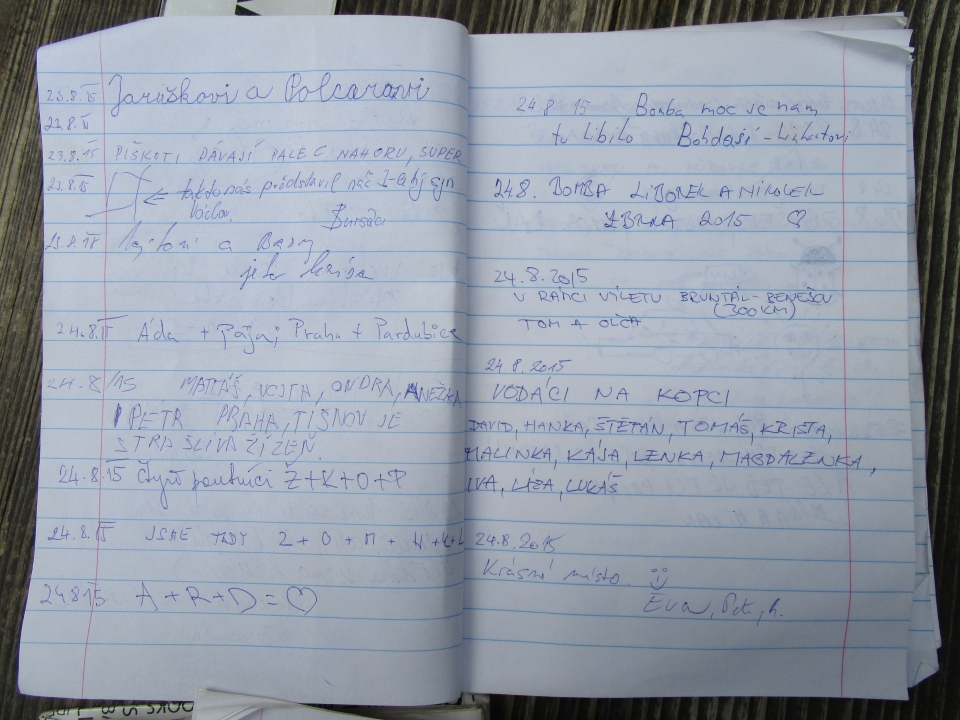 23.8.15 Jaruškovi a Polcarovi
23.8.15
23.8.15 PIŠKOTI DÁVAJÍ PALEC NAHORU, SUPER
23.8.15 ← takto nás představil náš syn
Václav.
23.8.15 a
jela
24.8.15 Áďa + Praha + Pardubice
24.8/15 MATĚÁŠ, VOJTA, ONDRA, ANEŽKA
PETR PRAHA, TIŠNOV JE
STRAŠLIVÁ ŽÍZEŇ.
24.8.15 Čtyři poutníci Ž+K+O+P
24.8.15 JSME TADY Z + O + M +
24815 A + R + D = ♡
24.8 15 Bomba moc se nám
tu líbilo
24.8. BOMBA LIBOREK A NIKOLEK
Z BRNA 2015 ♡
24.8.2015
V RÁMCI VÝLETU BRUNTÁL-BENEŠOV
(300KM)
TOM A OLČA
24.8.2015
VODÁCI NA KOPCI
DAVID, HANKA, ŠTĚTÁN, TOMÁŠ, KRISTA,
MALINKA, KÁJA, LENKA, MAGDALENKA,
IVA, LÍZA, LUKÁŠ
24.8.2015
Krásné místo
Eva, Pet, h.